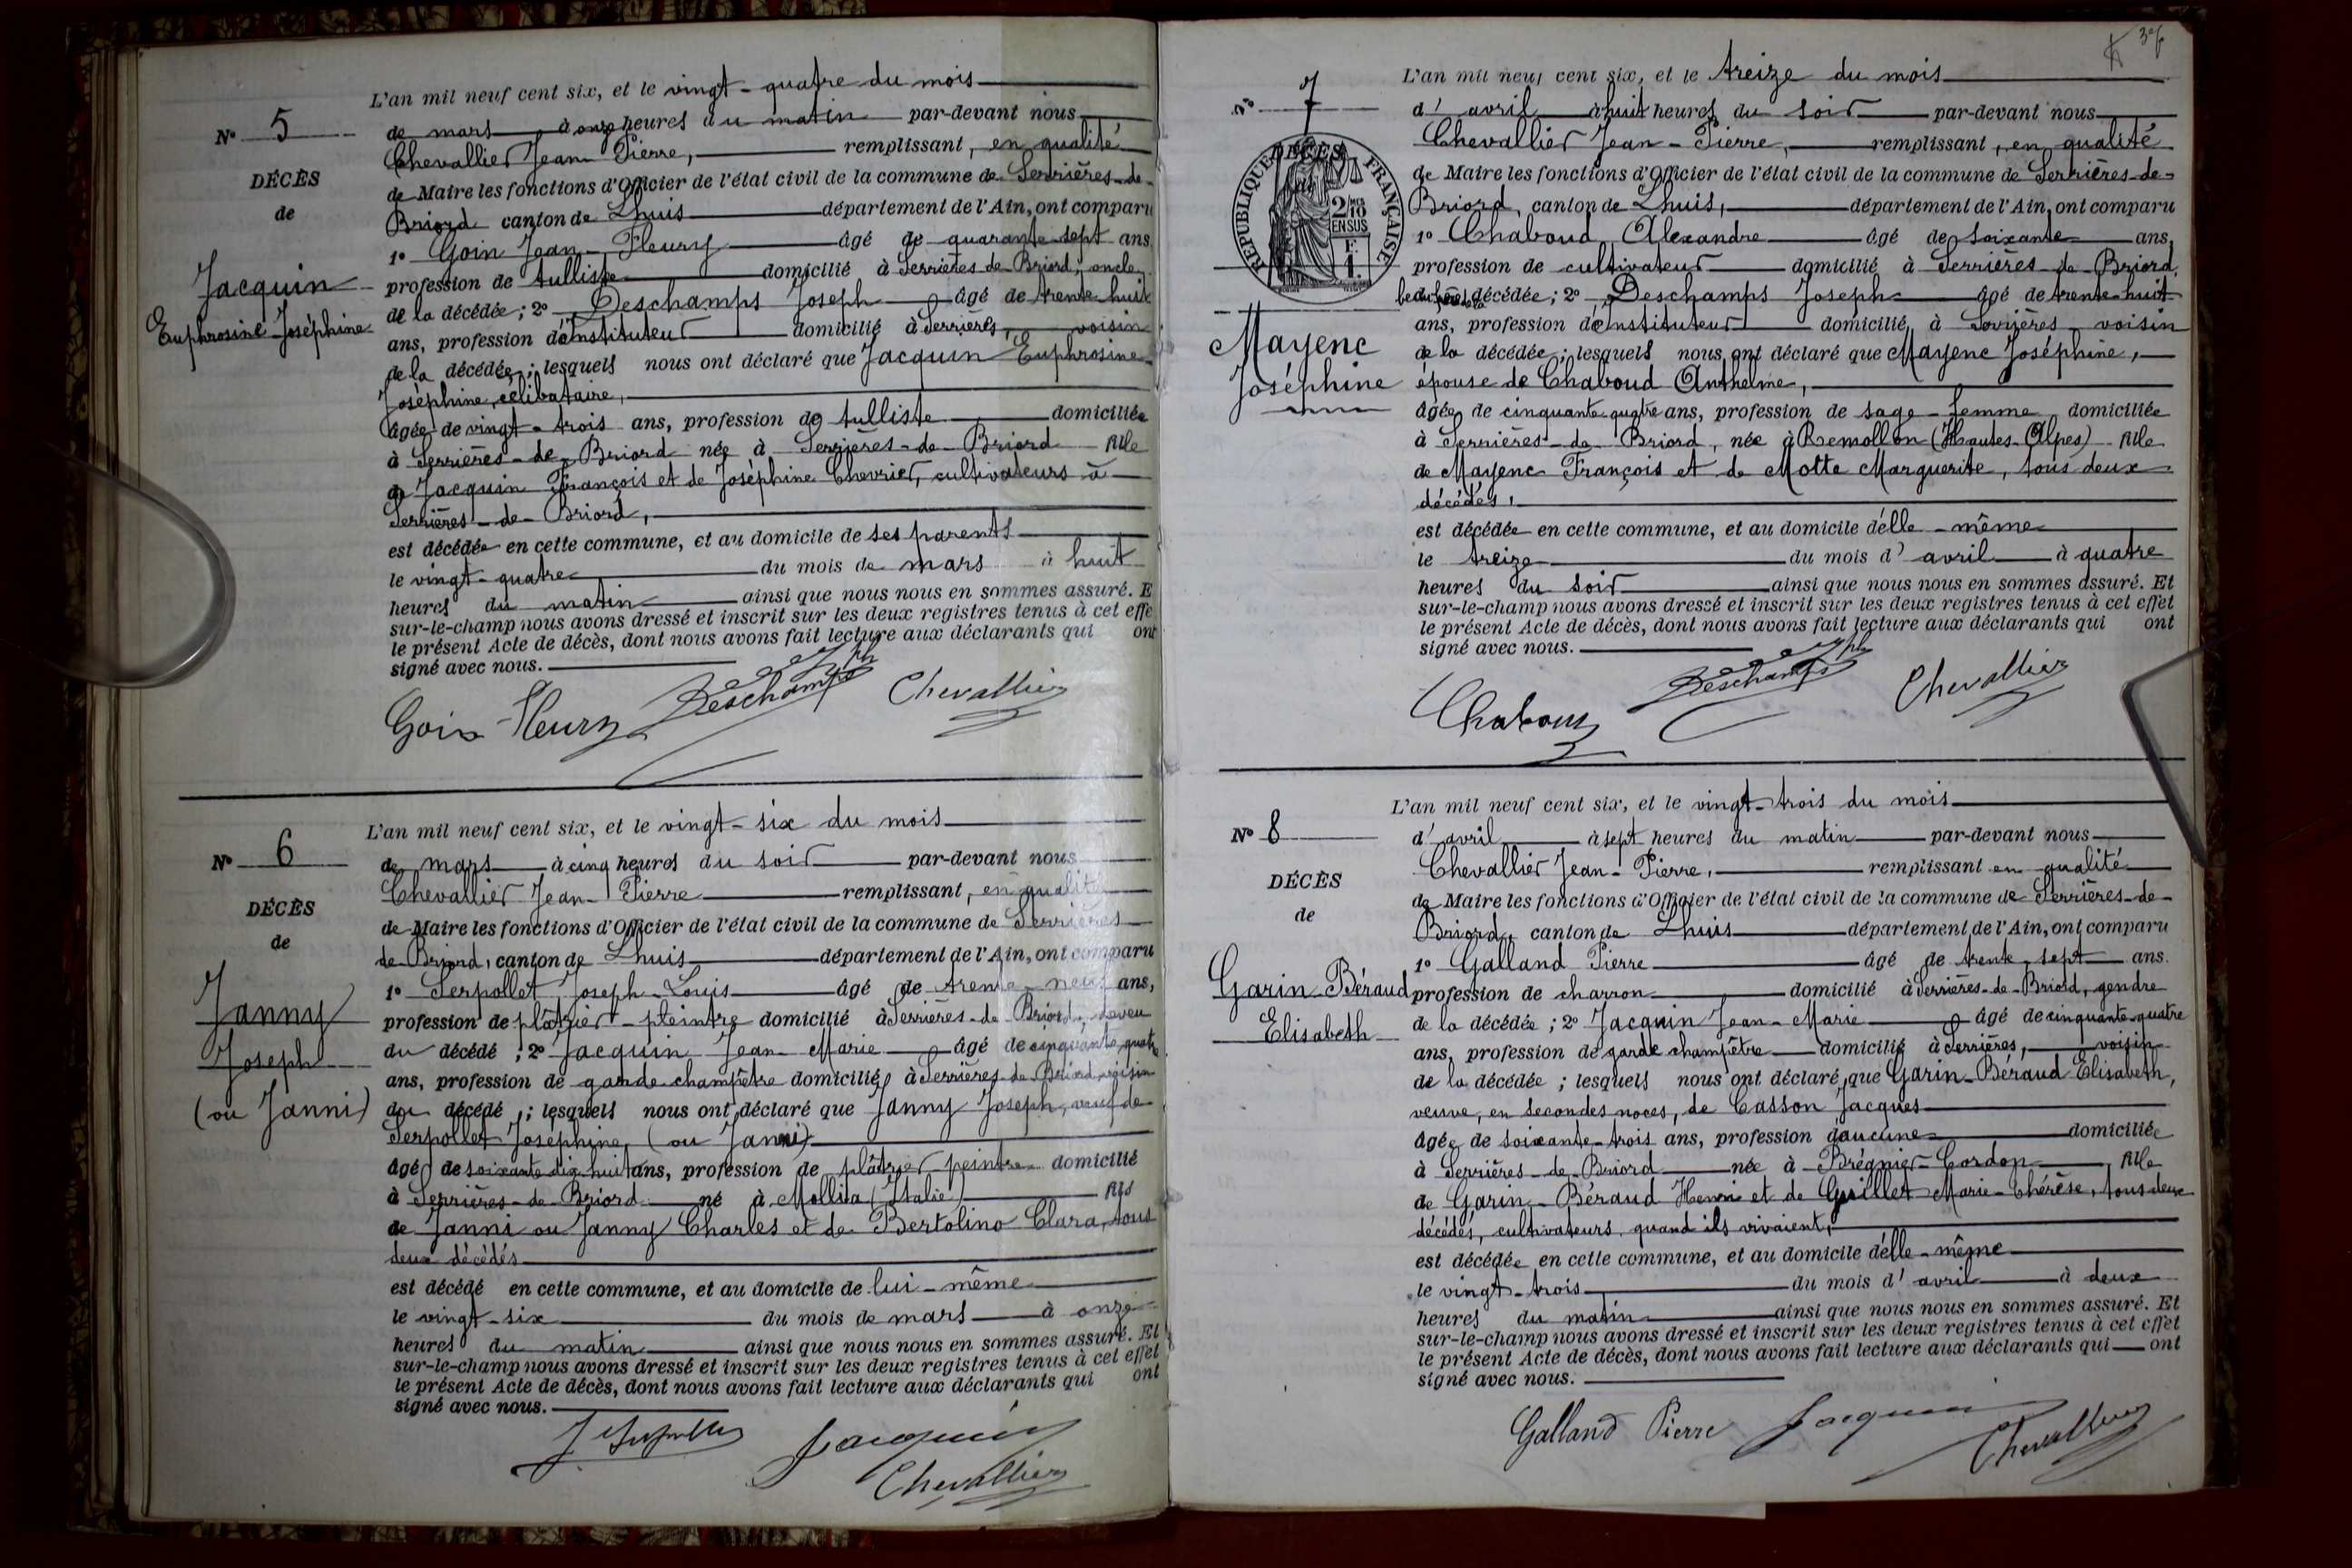 L'an mil neuf cent six, et le vingt-quatre du mois
N° 5
de mars à onze heures du matin par-devant nous
Chevallier Jean Pierre, remplissant, en qualité
DÉCÈS
de Maire les fonctions d'Officier de l'état civil de la commune de Serrières-de-
de
Briord canton de Lhuis département de l'Ain, ont comparu
1° Goin Jean-Fleury âgé de quarante-sept ans
Jacquin
profession de tulliste domicilié à Serrières de Briord, oncle
Euphrosine-Joséphine
de la décédée; 2° Deschamps Joseph âgé de trente-huit
ans, profession d'instituteur domicilié à Serrières, voisin
de la décédée; lesquels nous ont déclaré que Jacquin Euphrosine-
Joséphine, célibataire,
âgée de vingt-trois ans, profession de tulliste domiciliée
à Serrières-de-Briord née à Serrières-de-Briord fille
de Jacquin François et de Joséphine Chevrier, cultivateurs à
Serrières-de-Briord,
est décédée en cette commune, et au domicile de ses parents
le vingt-quatre du mois de mars à huit
heures du matin ainsi que nous nous en sommes assuré. E
sur-le-champ nous avons dressé et inscrit sur les deux registres tenus à cet effe
le présent Acte de décès, dont nous avons fait lecture aux déclarants qui ont
signé avec nous.
Goin Fleury Deschamps Jph Chevallier
L'an mil neuf cent six, et le vingt-six du mois
N° 6
de mars à cinq heures du soir par-devant nous
Chevallier Jean-Pierre remplissant, en qualité
DÉCÈS
de Maire les fonctions d'Officier de l'état civil de la commune de Serrières
de
de Briord, canton de Lhuis département de l'Ain, ont comparu
1° Serpollet Joseph-Louis âgé de trente-neuf ans,
Janny
profession de plâtrier-peintre domicilié à Serrières-de-Briord, neveu
Joseph
du décédé; 2° Jacquin Jean-Marie âgé de cinquante-quatre
ans, profession de garde champêtre domicilié à Serrières-de-Briord, voisin
(ou Janni)
du décédé; lesquels nous ont déclaré que Janny Joseph, veuf de
Serpollet Joséphine, (ou Janni)
âgé de soixante-dix-huit ans, profession de plâtrier-peintre domicilié
à Serrières-de-Briord né à Mollia (Italie) fils
de Janni ou Janny Charles et de Bertolino Clara, tous
deux décédés
est décédé en cette commune, et au domicile de lui-même
le vingt-six du mois de mars à onze
heures du matin ainsi que nous nous en sommes assuré. Et
sur-le-champ nous avons dressé et inscrit sur les deux registres tenus à cet effet
le présent Acte de décès, dont nous avons fait lecture aux déclarants qui ont
signé avec nous.
Jacquin
Chevallier
L'an mil neuf cent six, et le treize du mois
N° 7
d'avril à huit heures du soir par-devant nous
Chevallier Jean-Pierre, remplissant, en qualité
DÉCÈS
de
RÉPUBLIQUE FRANÇAISE
2/10 EN SUS
de Maire les fonctions d'Officier de l'état civil de la commune de Serrières-de-
Briord, canton de Lhuis, département de l'Ain, ont comparu
1° Chaboud Alexandre âgé de soixante ans,
profession de cultivateur domicilié à Serrières-de-Briord,
beau-frère de la décédée; 2° Deschamps Joseph âgé de trente-huit
Mayenc
ans, profession d'instituteur domicilié à Serrières voisin
Joséphine
de la décédée; lesquels nous ont déclaré que Mayenc Joséphine,
épouse de Chaboud Anthelme,
âgée de cinquante-quatre ans, profession de sage-femme domiciliée
à Serrières-de-Briord, née à Remollon (Hautes-Alpes) fille
de Mayenc François et de Motte Marguerite, tous deux
décédés,
est décédée en cette commune, et au domicile d'elle-même
le treize du mois d'avril à quatre
heures du soir ainsi que nous nous en sommes assuré. Et
sur-le-champ nous avons dressé et inscrit sur les deux registres tenus à cet effet
le présent Acte de décès, dont nous avons fait lecture aux déclarants qui ont
signé avec nous.
Chaboud Deschamps Jph Chevallier
L'an mil neuf cent six, et le vingt-trois du mois
N° 8
d'avril à sept heures du matin par-devant nous
Chevallier Jean-Pierre, remplissant en qualité
DÉCÈS
de Maire les fonctions d'Officier de l'état civil de la commune de Serrières-de-
de
Briord, canton de Lhuis département de l'Ain, ont comparu
1° Galland Pierre âgé de trente-sept ans.
Garin-Béraud
profession de charron domicilié à Serrières-de-Briord, gendre
Elisabeth
de la décédée; 2° Jacquin Jean-Marie âgé de cinquante-quatre
ans, profession de garde champêtre domicilié à Serrières, voisin
de la décédée; lesquels nous ont déclaré que Garin-Béraud Elisabeth,
veuve, en secondes noces, de Casson Jacques
âgée de soixante-trois ans, profession d'aucune domiciliée
à Serrières-de-Briord née à Brégnier-Cordon fille
de Garin-Béraud Henri et de Guillet Marie-Thérèse, tous deux
décédés, cultivateurs quand ils vivaient,
est décédée en cette commune, et au domicile d'elle-même
le vingt-trois du mois d'avril à deux
heures du matin ainsi que nous nous en sommes assuré. Et
sur-le-champ nous avons dressé et inscrit sur les deux registres tenus à cet effet
le présent Acte de décès, dont nous avons fait lecture aux déclarants qui ont
signé avec nous.
Galland Pierre Jacquin Chevallier